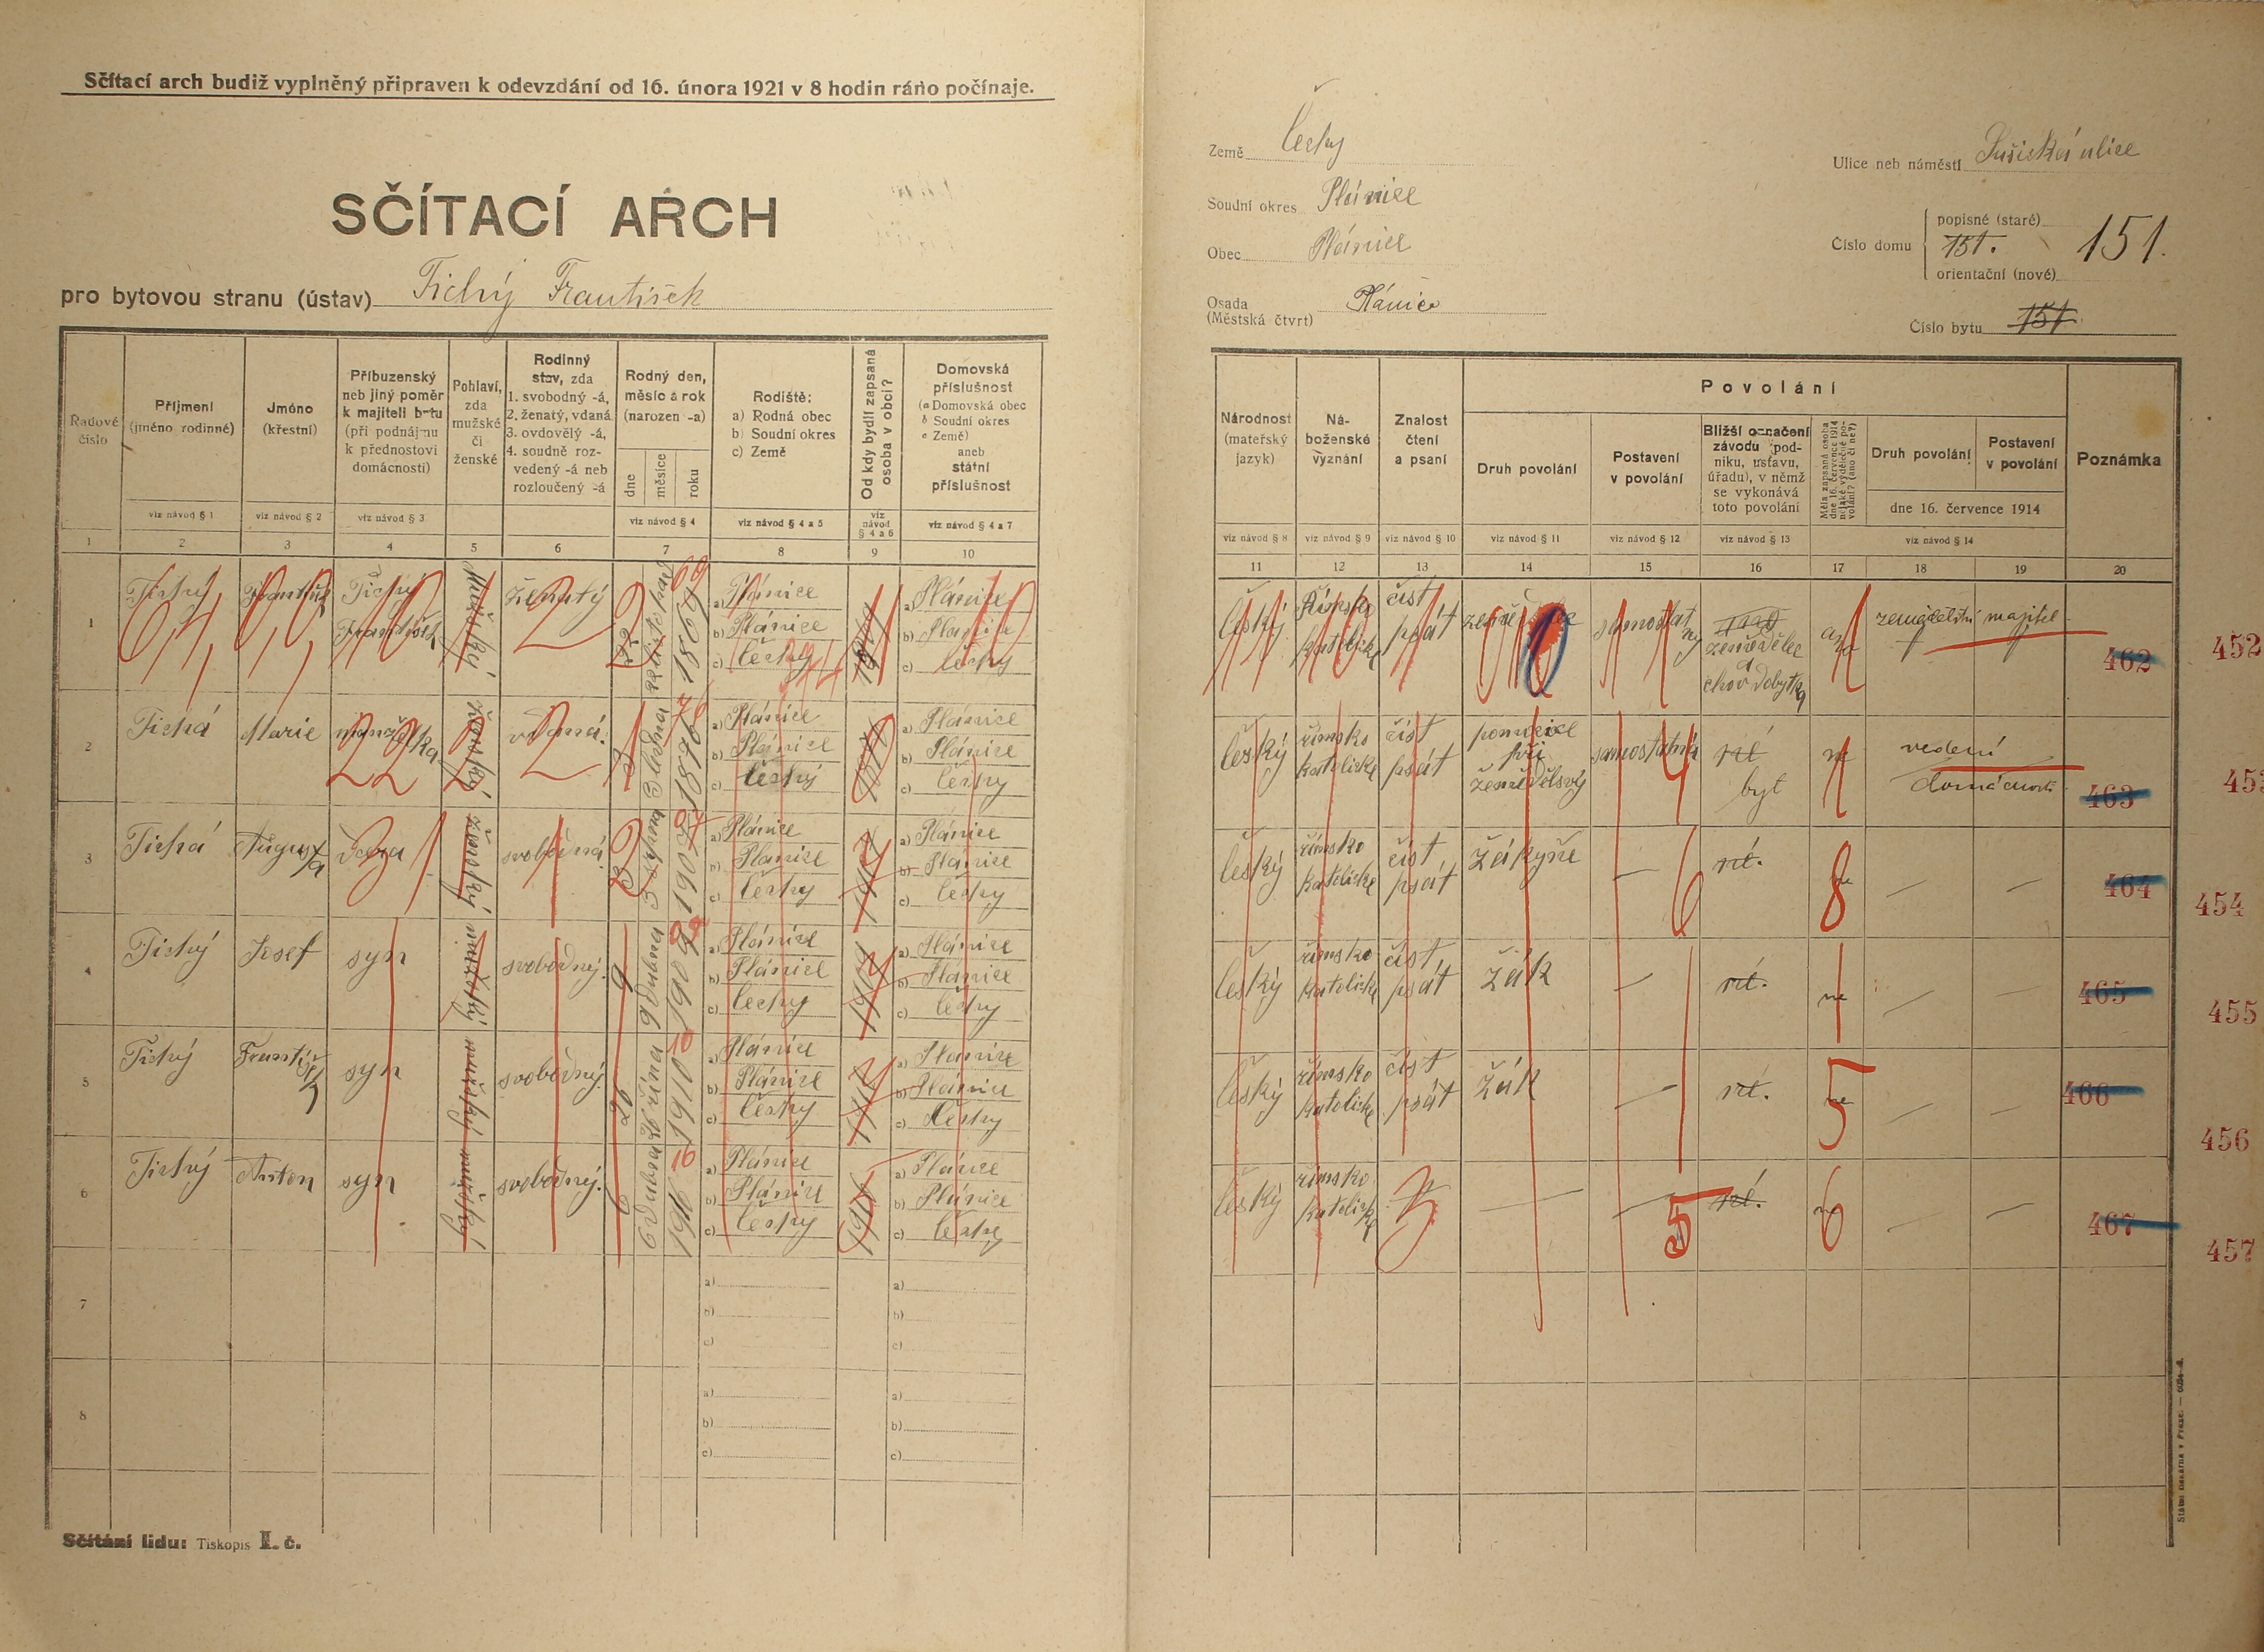 Sčítací arch budiž vyplněný připraven k odevzdání od 16. února 1921 v 8 hodin ráno počínaje.
SČÍTACÍ ARCH
pro bytovou stranu (ústav) Tichý František
Země Čechy
Soudní okres Plánice
Obec Plánice
Osada (Městská čtvrt) Plánice
Ulice neb náměstí Sušická ulice
Číslo domu
popisné (staré) 151.
orientační (nové)
151.
Číslo bytu 151
Řadové číslo
Příjmení (jméno rodinné)
Jméno (křestní)
Příbuzenský neb jiný poměr k majiteli bytu (při podnájmu k přednostovi domácnosti)
Pohlaví, zda mužské či ženské
Rodinný stav, zda
1. svobodný -á,
2. ženatý, vdaná
3. ovdovělý -á,
4. soudně rozvedený -á neb rozloučený -á
Rodný den, měsíc a rok (narozen -a)
dne
měsíce
roku
Rodiště:
a) Rodná obec
b) Soudní okres
c) Země
Od kdy bydlí zapsaná osoba v obci?
Domovská příslušnost
(a Domovská obec
b Soudní okres
c Země)
aneb
státní příslušnost
viz návod § 1
viz návod § 2
viz návod § 3
viz návod § 4
viz návod § 4 a 5
viz návod § 4 a 6
viz návod § 4 a 7
1 2 3 4 5 6 7 8 9 10
Národnost (mateřský jazyk)
Náboženské vyznání
Znalost čtení a psaní
Povolání
Druh povolání
Postavení v povolání
Bližší označení závodu podniku, ústavu, úřadu), v němž se vykonává toto povolání
Měla zapsaná osoba dne 16. července 1914 nějaké výdělečné povolání? (ano či ne?)
Druh povolání
Postavení v povolání
dne 16. července 1914
Poznámka
viz návod § 8
viz návod § 9
viz návod § 10
viz návod § 11
viz návod § 12
viz návod § 13
viz návod § 14
11 12 13 14 15 16 17 18 19 20
1 Tichý František Tichý František Mužský ženatý 1869 69
a) Plánice
b) Plánice
c) Čechy
a) Plánice
b) Plánice
c) Čechy
český římsko katolické číst psát samostatný zemědělec a chov dobytka ano zemědělství majitel 462 452
2 Tichá Marie manželka ženský vdaná 1876 76
a) Plánice
b) Plánice
c) Čechy
a) Plánice
b) Plánice
c) Čechy
český římsko katolické číst psát pomocnice při zemědělsvý samostatná byt ne vedení domácnosti 463 453
3 Tichá Augusta dcera ženský svobodná srpna 1907 07
a) Plánice
b) Plánice
c) Čechy
1907
a) Plánice
b) Plánice
c) Čechy
český římsko katolické číst psát žákyně — ne — — 464 454
4 Tichý Josef syn mužský svobodný. 9 dubna 1909 09
a) Plánice
b) Plánice
c) Čechy
1909
a) Plánice
b) Plánice
c) Čechy
český římsko katolické číst psát žák — ne — — 465 455
5 Tichý František syn mužský svobodný 26 října 1910 10
a) Plánice
b) Plánice
c) Čechy
1910
a) Plánice
b) Plánice
c) Čechy
český římsko katolické číst psát žák — ne — — 466 456
6 Tichý Anton syn mužský svobodný. 6 dubna 1916 16
a) Plánice
b) Plánice
c) Čechy
1916
a) Plánice
b) Plánice
c) Čechy
český římsko katolické — — ne — — 467 457
7
a)
b)
c)
a)
b)
c)
8
a)
b)
c)
a)
b)
c)
Sčítání lidu: Tiskopis II. č.
Státní tiskárna v Praze. — 6024-d.